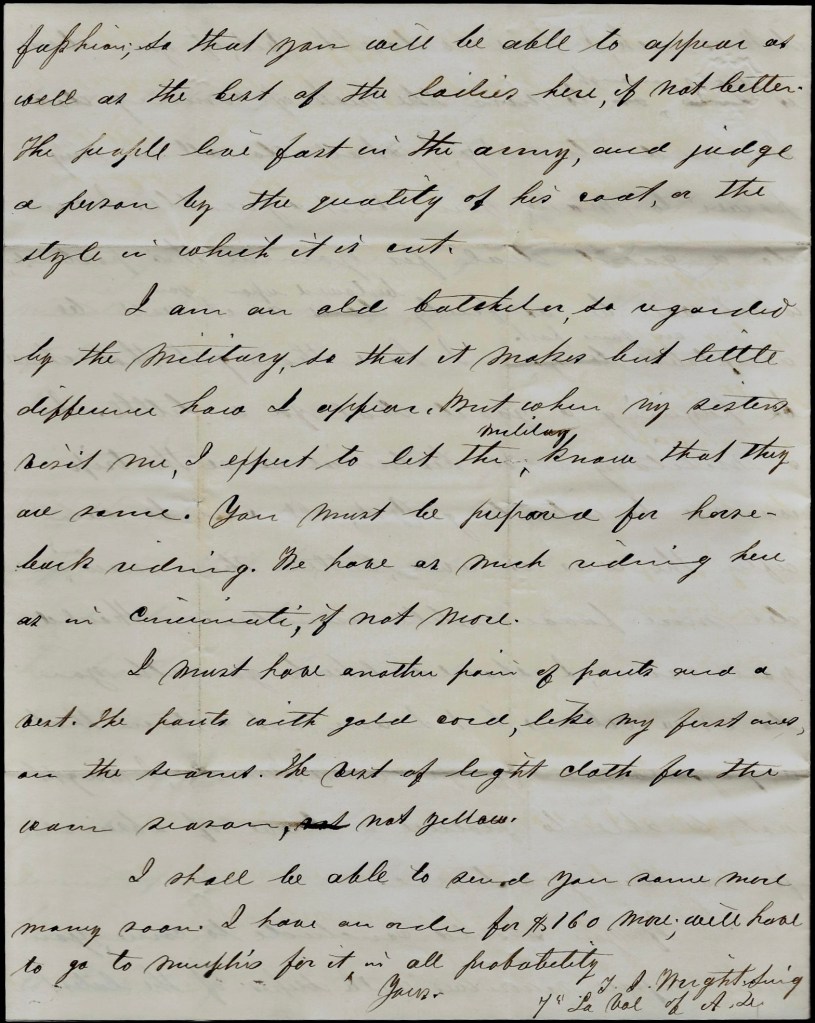 fashion, so that you will be able to appear as
well as the best of the ladies here, if not better.
The people live fast in the army, and judge
a person by the quality of his coat, or the
style in which it is cut.
I am an old batcheler, so regarded
by the military, so that it makes but little
difference how I appear. But when my sisters
visit me, I expect to let the military know that they
are some. You must be prepared for horse-
back riding. We have as much riding here
as in Cincinnati, if not more.
I must have another pair of pants and a
vest. The pants with gold cord, like my first ones,
on the seams. The vest of light cloth for the
warm season, not yellow.
I shall be able to send you some more
money soon. I have an order for $160 more; will have
to go to Memphis for it in all probability
Yours.
Wright Surg
7th La Vol of A. D.